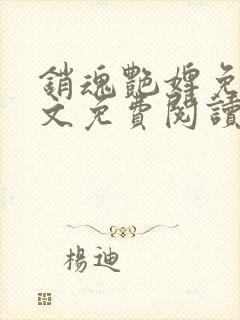 銷魂艷婢免
文免費閱讀
楊迪